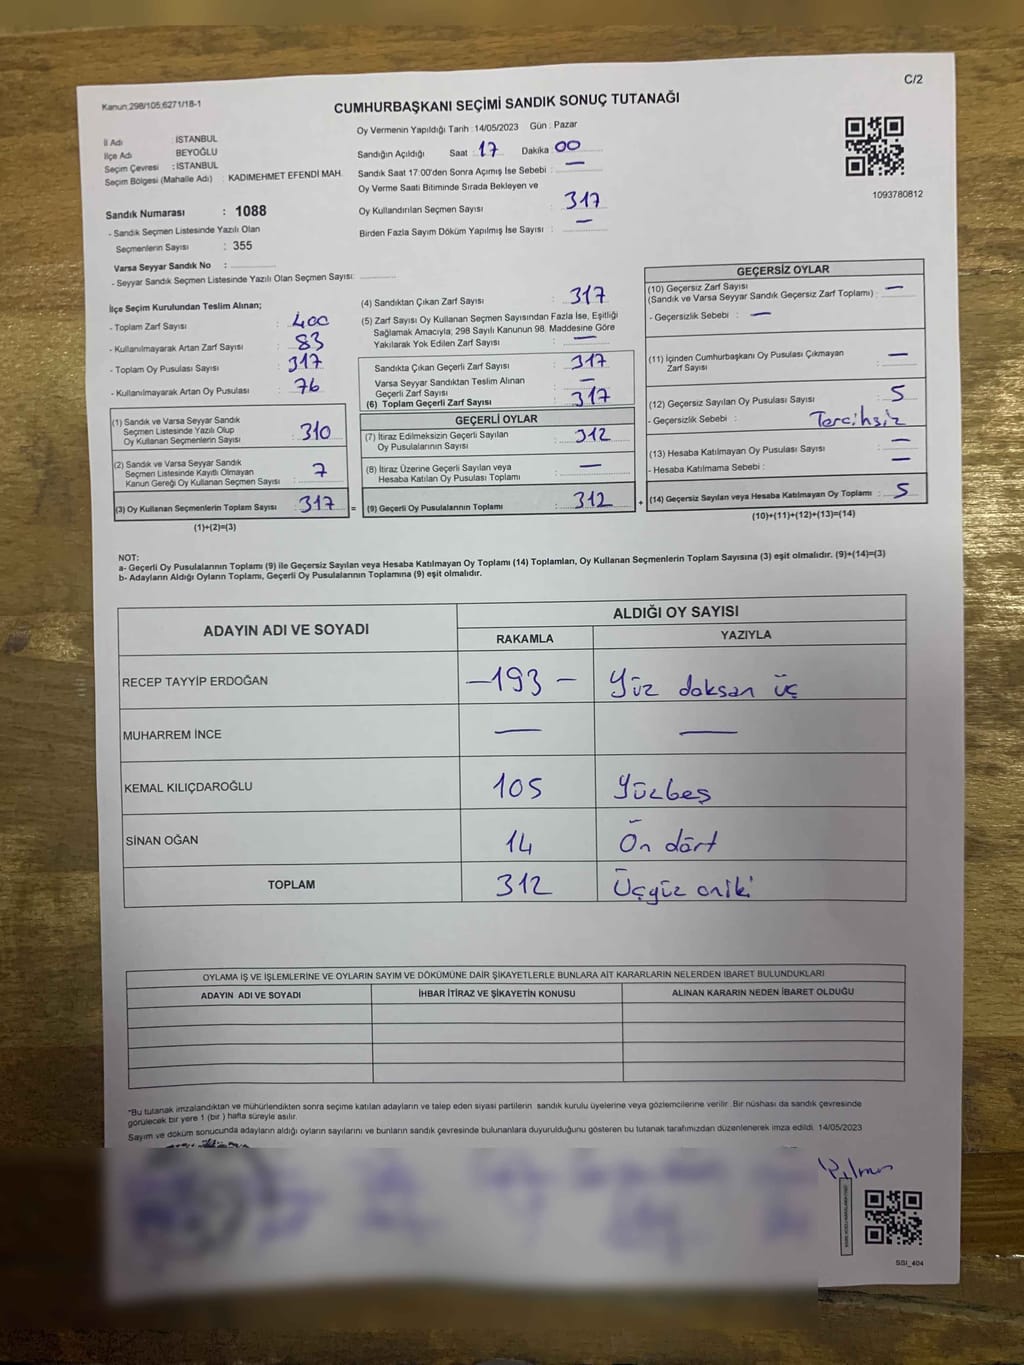 C/2
Kanun:298/105;6271/18-1
CUMHURBAŞKANI SEÇİMİ SANDIK SONUÇ TUTANAĞI
İl Adı : İSTANBUL
İlçe Adı BEYOĞLU
Seçim Çevresi : İSTANBUL
Seçim Bölgesi (Mahalle Adı) : KADIMEHMET EFENDİ MAH.
Sandık Numarası : 1088
- Sandık Seçmen Listesinde Yazılı Olan
Seçmenlerin Sayısı : 355
Varsa Seyyar Sandık No :
- Seyyar Sandık Seçmen Listesinde Yazılı Olan Seçmen Sayısı:
Oy Vermenin Yapıldığı Tarih : 14/05/2023 Gün : Pazar
Sandığın Açıldığı Saat : 17 Dakika : 00
Sandık Saat 17:00'den Sonra Açımış İse Sebebi : —
Oy Verme Saati Bitiminde Sırada Bekleyen ve
Oy Kullandırılan Seçmen Sayısı : 317
Birden Fazla Sayım Döküm Yapılmış İse Sayısı : —
1093780812
İlçe Seçim Kurulundan Teslim Alınan;
- Toplam Zarf Sayısı : 400
- Kullanılmayarak Artan Zarf Sayısı : 83
- Toplam Oy Pusulası Sayısı : 317
- Kullanılmayarak Artan Oy Pusulası : 76
(1) Sandık ve Varsa Seyyar Sandık
Seçmen Listesinde Yazılı Olup
Oy Kullanan Seçmenlerin Sayısı : 310
(2) Sandık ve Varsa Seyyar Sandık
Seçmen Listesinde Kayıtlı Olmayan
Kanun Gereği Oy Kullanan Seçmen Sayısı : 7
(3) Oy Kullanan Seçmenlerin Toplam Sayısı : 317 =
(1)+(2)=(3)
(4) Sandıktan Çıkan Zarf Sayısı : 317
(5) Zarf Sayısı Oy Kullanan Seçmen Sayısından Fazla İse, Eşitliği
Sağlamak Amacıyla, 298 Sayılı Kanunun 98. Maddesine Göre
Yakılarak Yok Edilen Zarf Sayısı : —
Sandıkta Çıkan Geçerli Zarf Sayısı : 317
Varsa Seyyar Sandıktan Teslim Alınan
Geçerli Zarf Sayısı : —
(6) Toplam Geçerli Zarf Sayısı : 317
GEÇERLİ OYLAR
(7) İtiraz Edilmeksizin Geçerli Sayılan
Oy Pusulalarının Sayısı : 312
(8) İtiraz Üzerine Geçerli Sayılan veya
Hesaba Katılan Oy Pusulası Toplamı : —
(9) Geçerli Oy Pusulalarının Toplamı : 312 +
GEÇERSİZ OYLAR
(10) Geçersiz Zarf Sayısı
(Sandık ve Varsa Seyyar Sandık Geçersiz Zarf Toplamı) : —
- Geçersizlik Sebebi : —
(11) İçinden Cumhurbaşkanı Oy Pusulası Çıkmayan
Zarf Sayısı : —
(12) Geçersiz Sayılan Oy Pusulası Sayısı : 5
- Geçersizlik Sebebi : Tercihsiz
(13) Hesaba Katılmayan Oy Pusulası Sayısı : —
- Hesaba Katılmama Sebebi : —
(14) Geçersiz Sayılan veya Hesaba Katılmayan Oy Toplamı : 5
(10)+(11)+(12)+(13)=(14)
NOT:
a- Geçerli Oy Pusulalarının Toplamı (9) ile Geçersiz Sayılan veya Hesaba Katılmayan Oy Toplamı (14) Toplamları, Oy Kullanan Seçmenlerin Toplam Sayısına (3) eşit olmalıdır. (9)+(14)=(3)
b- Adayların Aldığı Oyların Toplamı, Geçerli Oy Pusulalarının Toplamına (9) eşit olmalıdır.
ADAYIN ADI VE SOYADI ALDIĞI OY SAYISI
RAKAMLA YAZIYLA
RECEP TAYYİP ERDOĞAN —193— Yüz doksan üç
MUHARREM İNCE — —
KEMAL KILIÇDAROĞLU 105 Yüzbeş
SİNAN OĞAN 14 On dört
TOPLAM 312 Üçyüz oniki
OYLAMA İŞ VE İŞLEMLERİNE VE OYLARIN SAYIM VE DÖKÜMÜNE DAİR ŞİKAYETLERLE BUNLARA AİT KARARLARIN NELERDEN İBARET BULUNDUKLARI
ADAYIN ADI VE SOYADI İHBAR İTİRAZ VE ŞİKAYETİN KONUSU ALINAN KARARIN NEDEN İBARET OLDUĞU
"Bu tutanak imzalandıktan ve mühürlendikten sonra seçime katılan adayların ve talep eden siyasi partilerin sandık kurulu üyelerine veya gözlemcilerine verilir .Bir nüshası da sandık çevresinde
görülecek bir yere 1 (bir ) hafta süreyle asılır.
Sayım ve döküm sonucunda adayların aldığı oyların sayılarını ve bunların sandık çevresinde bulunanlara duyurulduğunu gösteren bu tutanak tarafımızdan düzenlenerek imza edildi. 14/05/2023
SSI_404